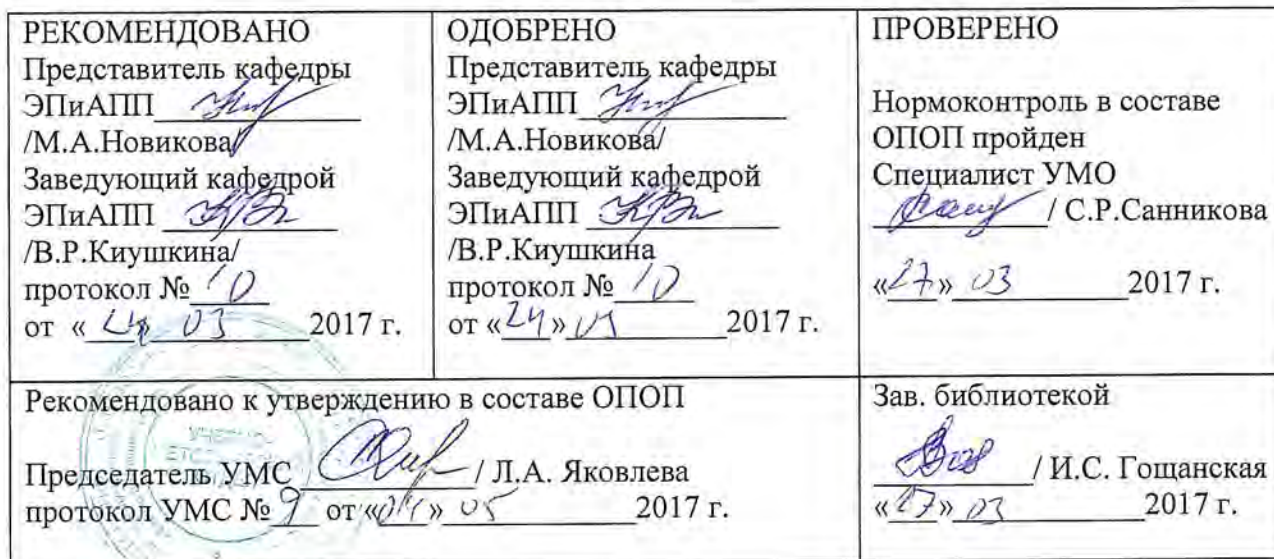 РЕКОМЕНДОВАНО
Представитель кафедры
ЭПиАПП
/М.А.Новикова/
Заведующий кафедрой
ЭПиАПП
/В.Р.Киушкина/
протокол № 10
от « 24» 03 2017 г.
ОДОБРЕНО
Представитель кафедры
ЭПиАПП
/М.А.Новикова/
Заведующий кафедрой
ЭПиАПП
/В.Р.Киушкина
протокол № 10
от «24» 2017 г.
ПРОВЕРЕНО
Нормоконтроль в составе
ОПОП пройден
Специалист УМО
/ С.Р.Санникова
«27» 03 2017 г.
Рекомендовано к утверждению в составе ОПОП
Председатель УМС / Л.А. Яковлева
протокол УМС № 9 от «04» 05 2017 г.
Зав. библиотекой
/ И.С. Гощанская
«27» 03 2017 г.